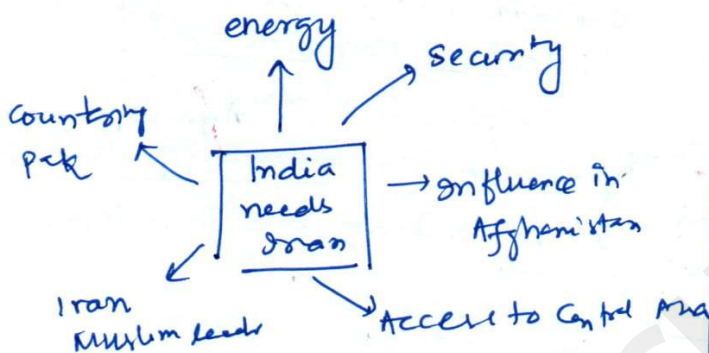 energy
security
Countering
Pak
India
needs
Iran
Influence in
Afghanistan
Iran
Muslim leader
Access to Central Asia